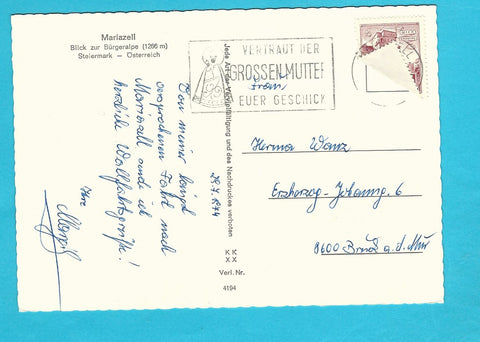 Mariazell
Blick zur Bürgeralpe (1266 m)
Steiermark – Österreich
Von meiner
versprochenen Fahrt nach
Mariazell sende ich
herzliche Wallfahrtsgrüße!
Ihre
28.7.1974
Jede Art der Vervielfältigung und des Nachdruckes verboten
K K
X X
Verl. Nr.
4194
VERTRAUT DER
GROSSEN MUTTER
EUER GESCHICK
Frau
Herma
Erzherzog-Johanng. 6
8600 Bruck a. d. Mur